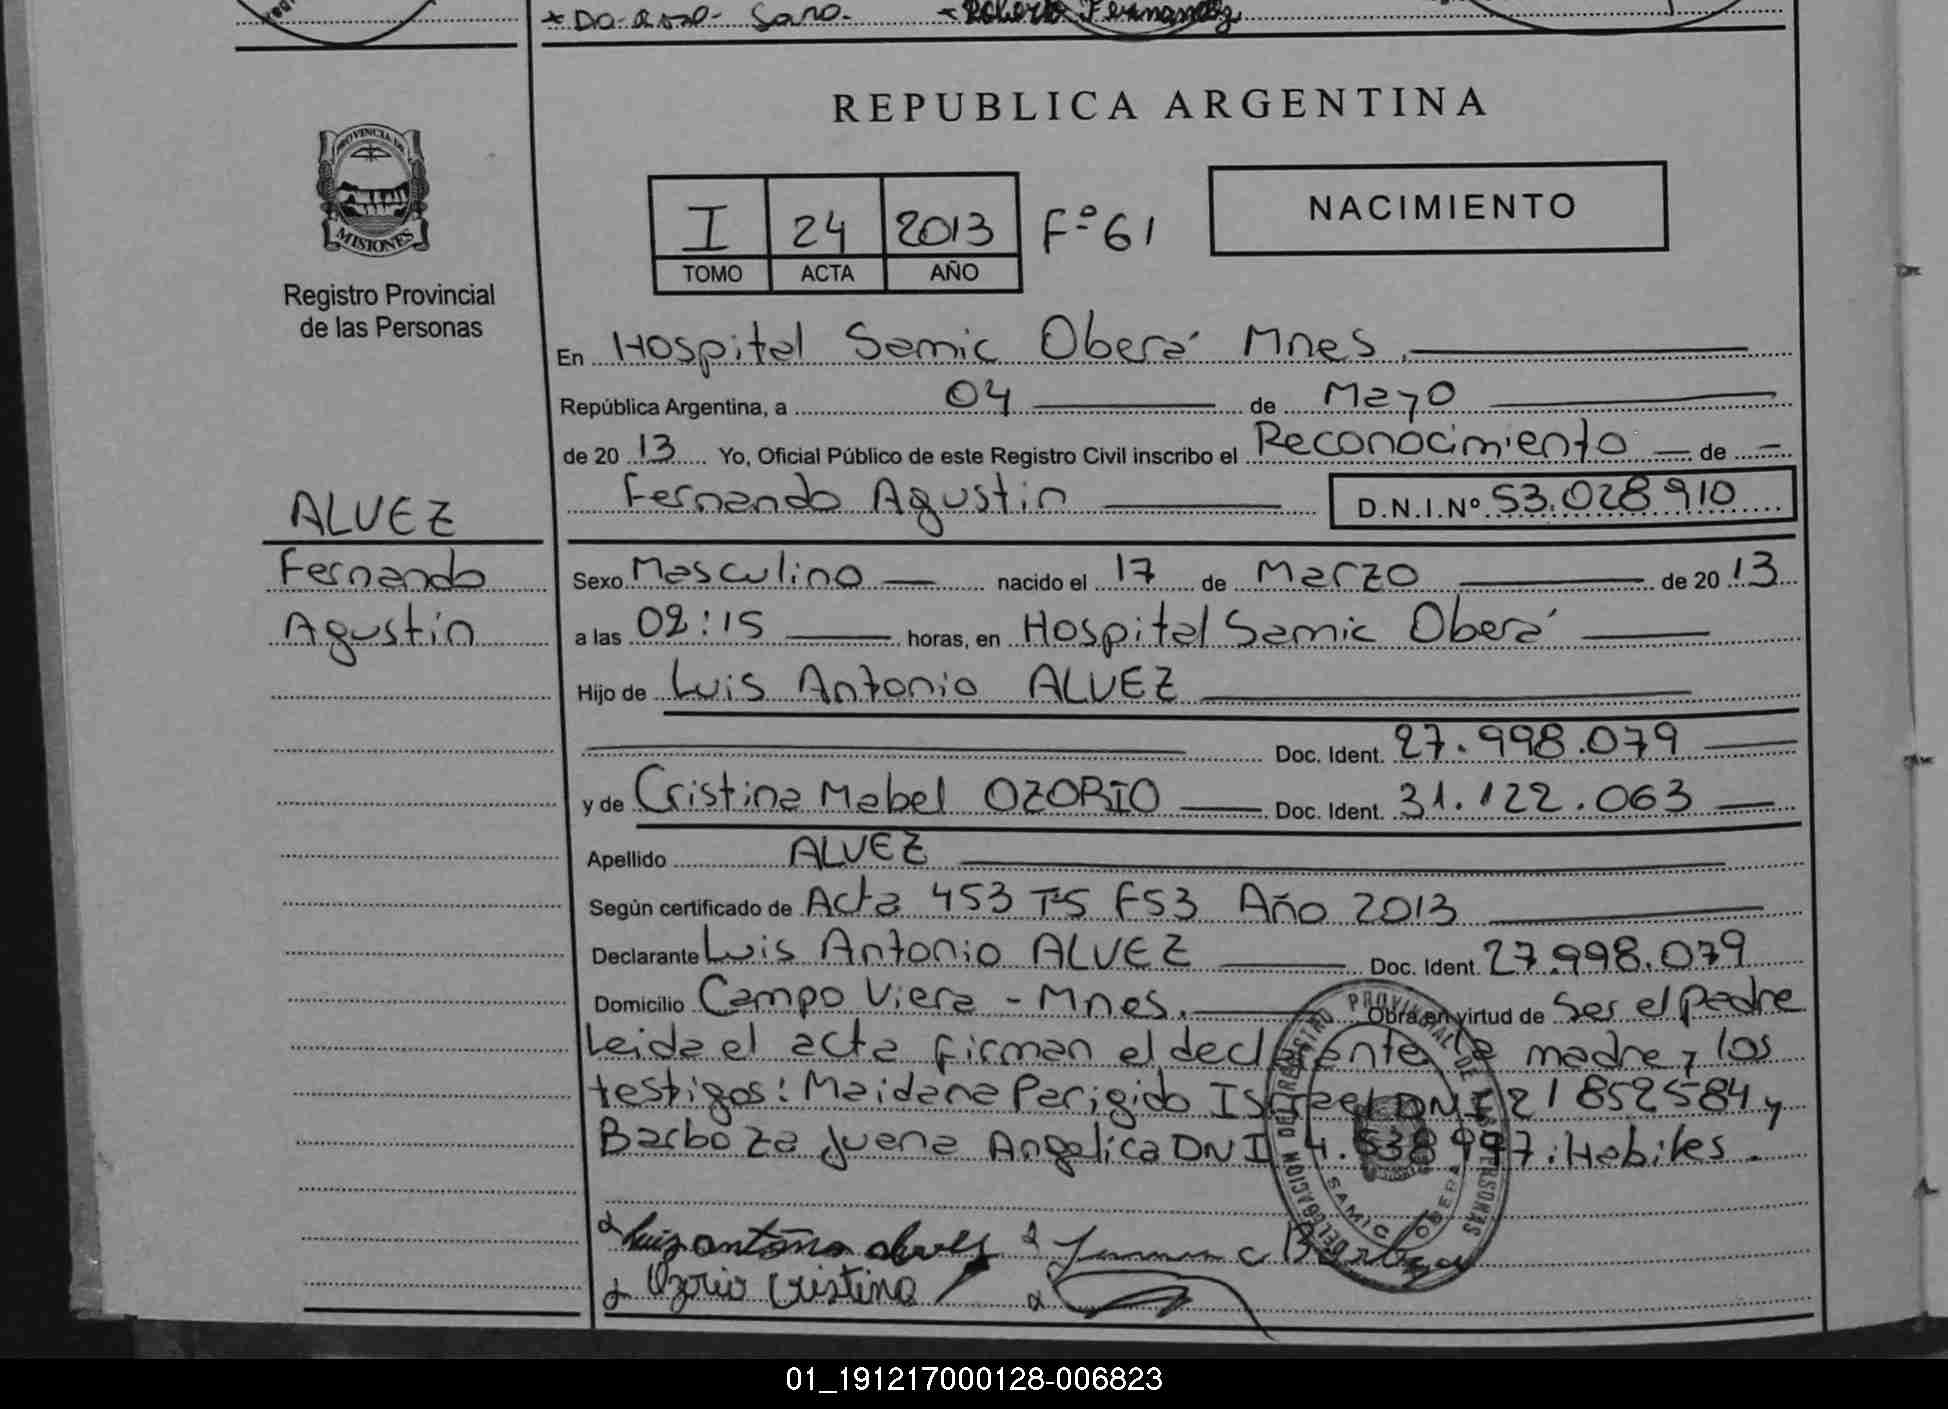 Roberto Fernandez
REPUBLICA ARGENTINA
PROVINCIA DE
MISIONES
Registro Provincial
de las Personas
I 24 2013 Fº 61
TOMO ACTA AÑO
NACIMIENTO
En Hospital Samic Oberá Mnes.
República Argentina, a 04 de Mayo
de 20 13 Yo, Oficial Público de este Registro Civil inscribo el Reconocimiento de
Fernando Agustin D.N.I.Nº 53.028910
ALVEZ
Fernando
Agustin
Sexo Masculino nacido el 17 de Marzo de 20 13
a las 02:15 horas, en Hospital Samic Oberá
Hijo de Luis Antonio ALVEZ
Doc. Ident. 27.998.079
y de Cristina Mabel OZORIO Doc. Ident. 31.122.063
Apellido ALVEZ
Según certificado de Acta 453 Tº5 F53 Año 2013
Declarante Luis Antonio ALVEZ Doc. Ident. 27.998.079
Domicilio Campo Viera - Mnes. Obra en virtud de Ser el padre
Leida el acta firman el declarante, la madre y los
testigos: Maidana Perigido Israel DNI 21852584 y
Barboza Juana Angelica DNI 4.638997. Habiles.
REGISTRO PROVINCIAL DE LAS PERSONAS
DELEGACION
SAMIC OBERA
Luiz antonio alves
Ozorio Cristina
01_191217000128-006823